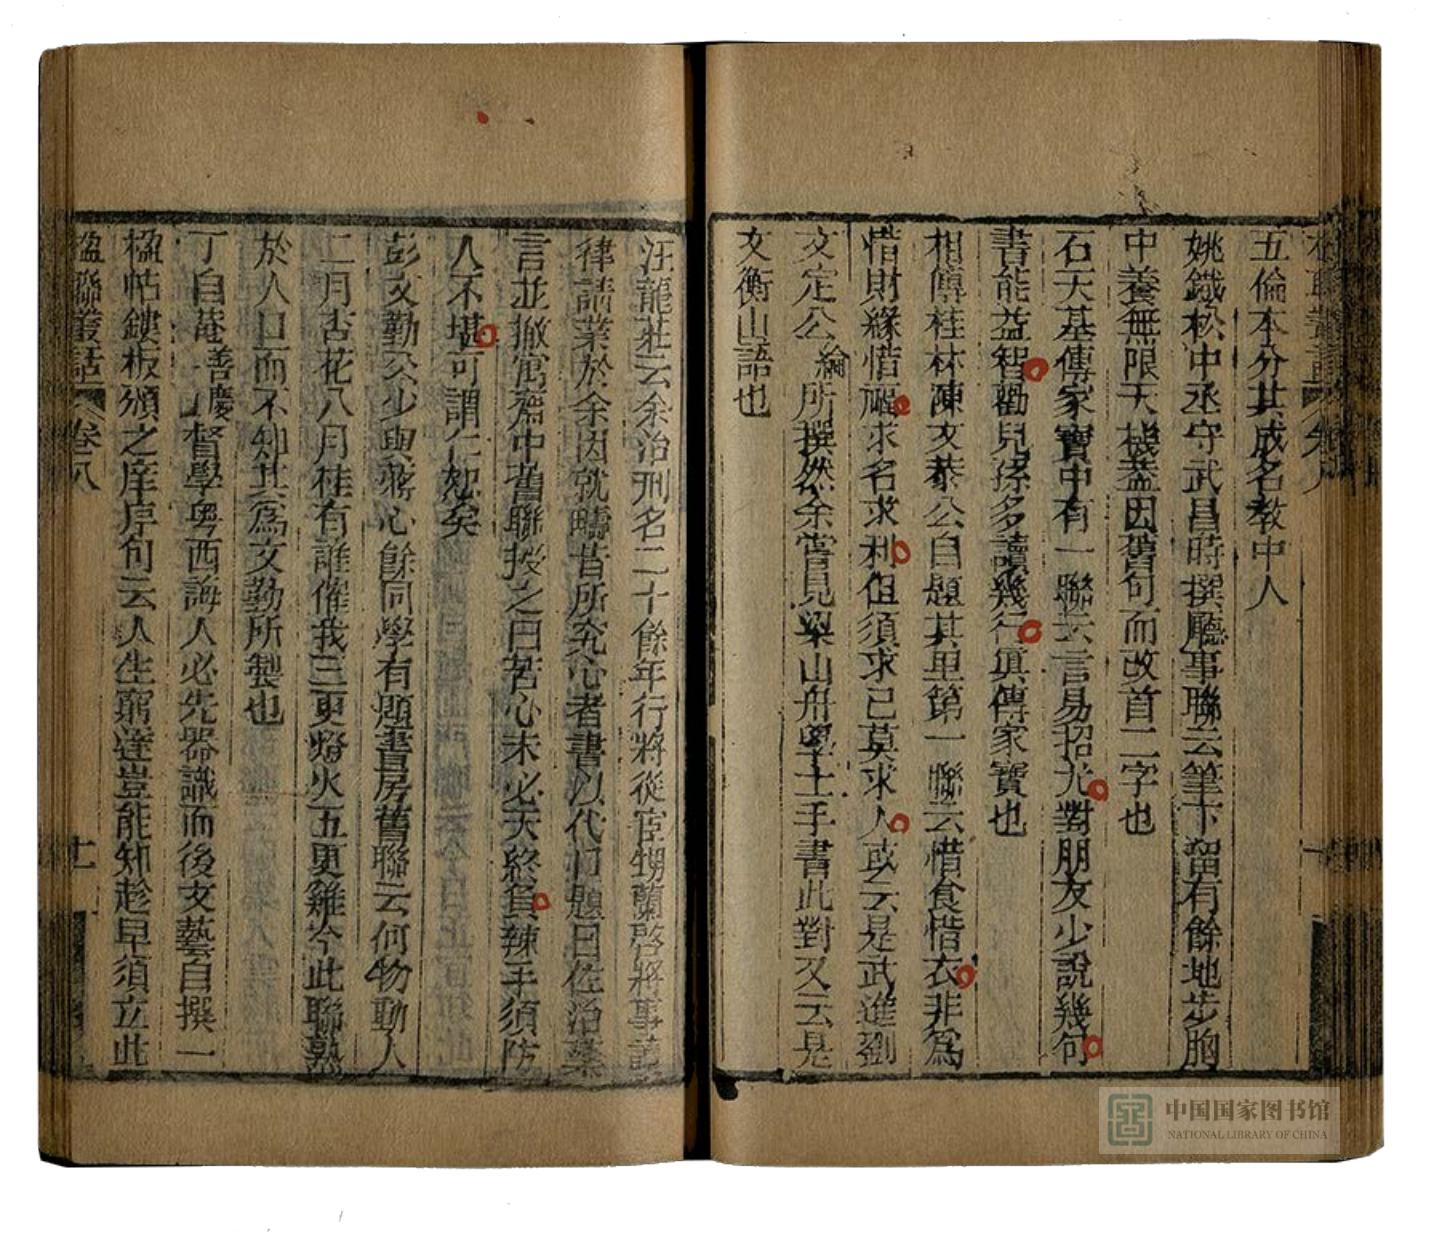 五倫本分其成名教中人
姚鐵松中丞守武昌時撰廳事聯云筆下留有餘地步胸
中養無限天機蓋因舊句而改首二字也
石天基傳家寶中有一聯云言易招尤對朋友少說幾句
書能益智勸兒孫多讀幾行真傳家寶也
相傳桂林陳文恭公自題其里第一聯云惜食惜衣非爲
惜財緣惜福求名求利但須求己莫求人或云是武進劉
文定公綸所撰然余嘗見梁山舟學士手書此對又云是
文衡山語也
汪龍莊云余治刑名二十餘年行將從宦甥蘭啓將事讀
律請業於余因就疇昔所究心者書以代口題曰佐治藥
言並撤寓齋中舊聯授之曰苦心未必天終負辣手須防
人不堪可謂仁恕矣
彭文勤公少與蔣心餘同學有題書房舊聯云何物動人
二月杏花八月桂有誰催我三更燈火五更雞今此聯熟
於人口而不知其爲文勤所製也
丁自菴善慶督學粵西誨人必先器識而後文藝自撰一
楹帖鏤板頒之庠序句云人生窮達豈能知趁早須立此
楹聯叢話 卷八 十一
中国国家图书馆
NATIONAL LIBRARY OF CHINA